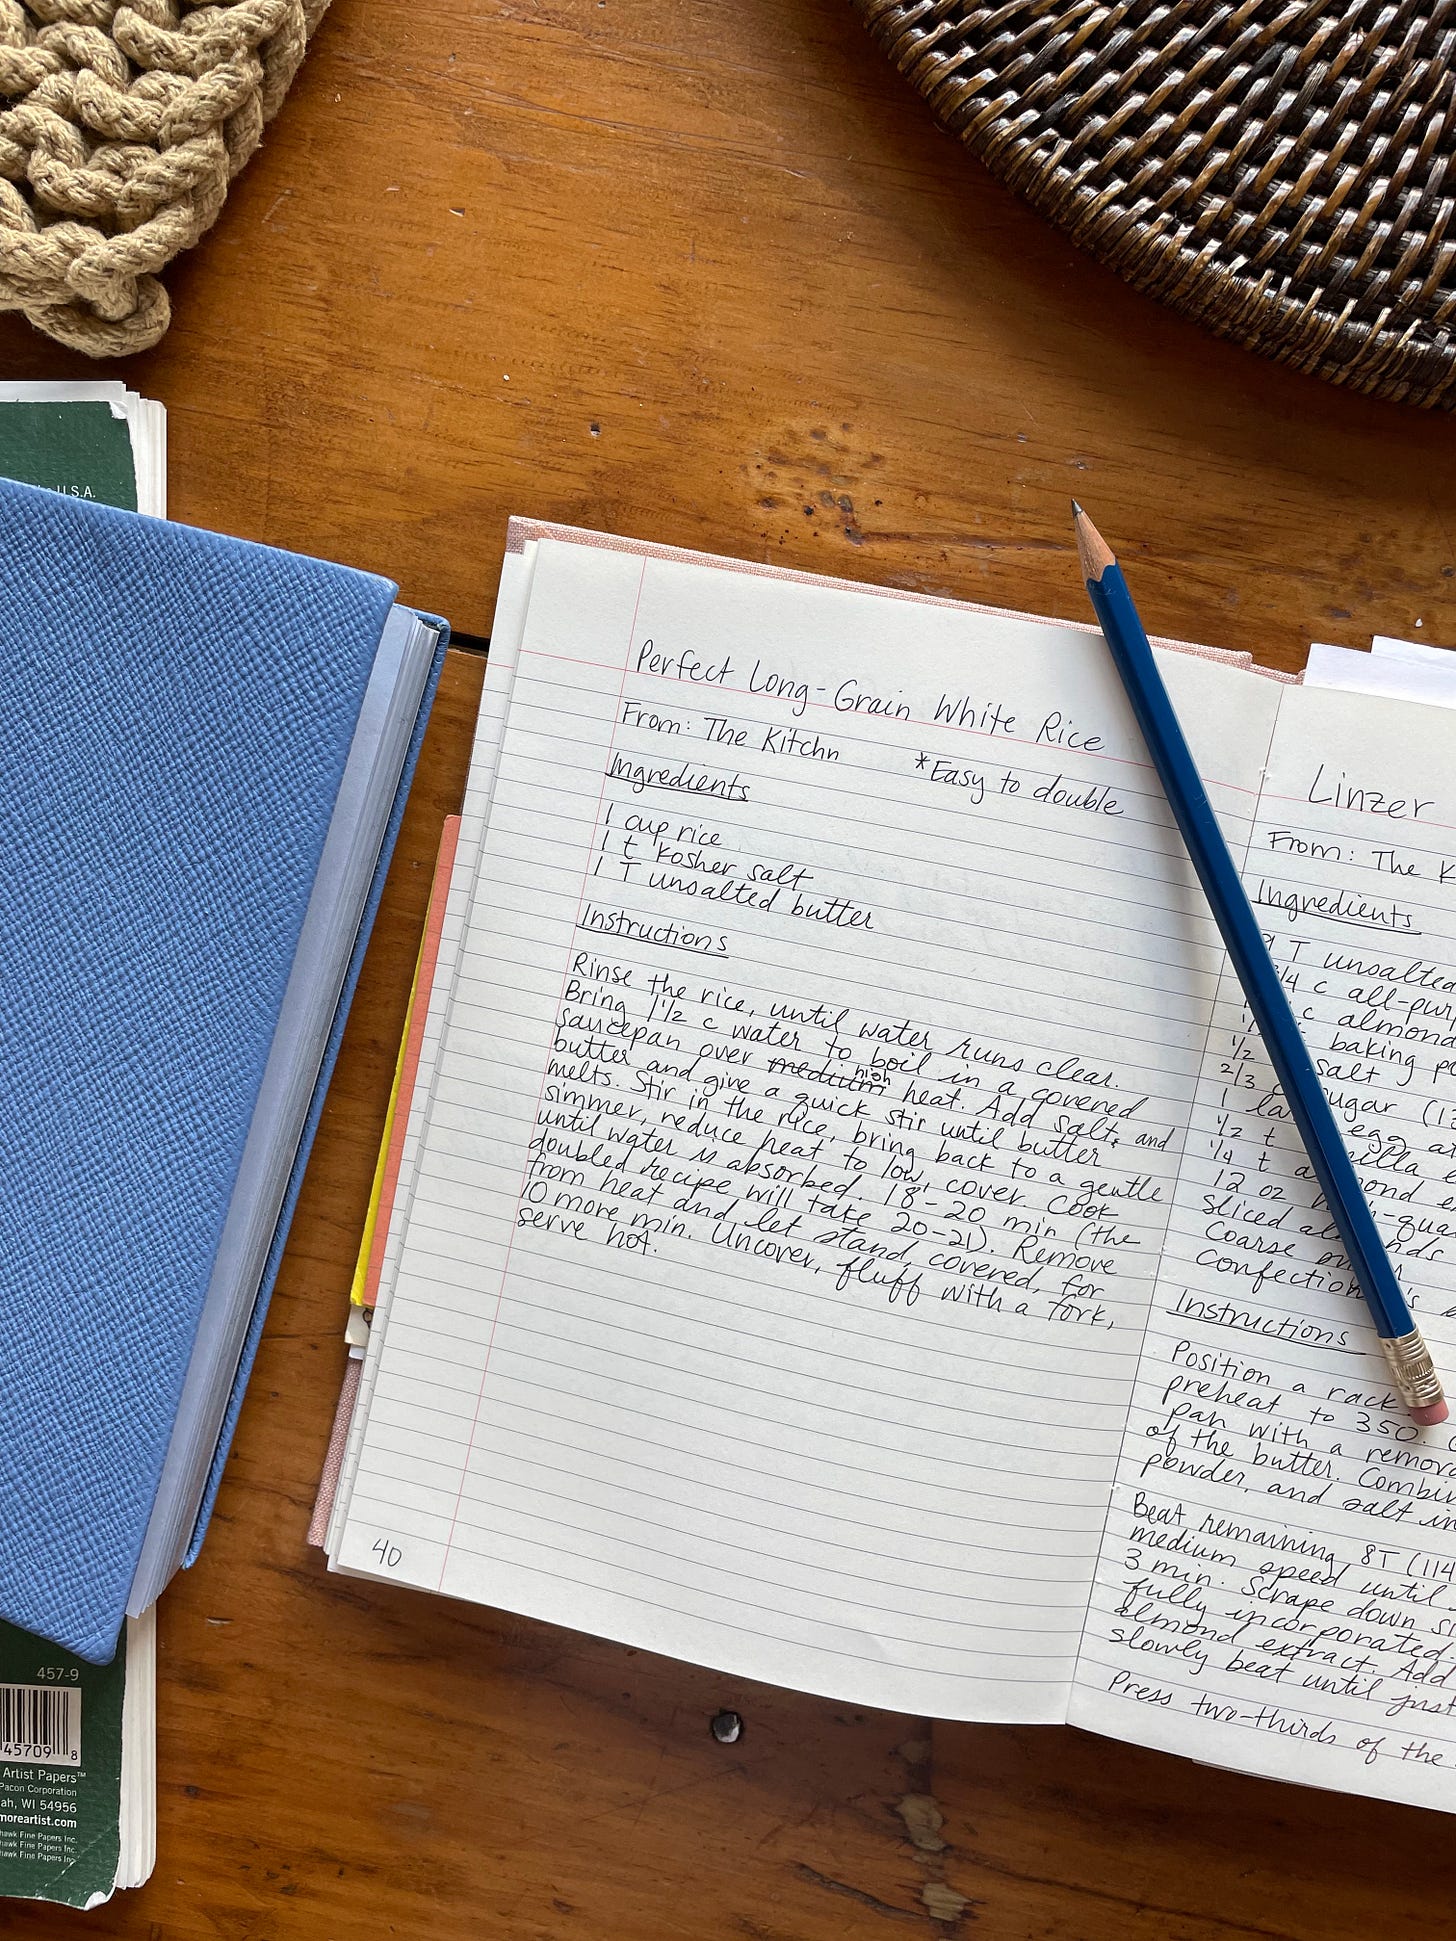 U.S.A.
Perfect Long-Grain White Rice
From: The Kitchn *Easy to double
Ingredients
1 cup rice
1 t kosher salt
1 T unsalted butter
Instructions
Rinse the rice, until water runs clear.
Bring 1 1/2 c water to boil in a covered
saucepan over medium high heat. Add salt, and
butter and give a quick stir until butter
melts. Stir in the rice, bring back to a gentle
simmer, reduce heat to low, cover. Cook
until water is absorbed. 18-20 min (the
doubled recipe will take 20-21). Remove
from heat and let stand, covered, for
10 more min. Uncover, fluff with a fork,
serve hot.
40
Linzer
From: The K
Ingredients
T unsalted
/4 c all-pur
c almond
baking po
1/2 salt
2/3 sugar (13
1 la egg at
1/2 t nilla e
1/4 t a mond e
12 oz h-qua
sliced al nds
Coarse
Confection 's
Instructions
Position a rack
preheat to 350.
pan with a remova
of the butter. Combin
powder, and salt in
Beat remaining 8T (114
medium speed until
3 min. Scrape down si
fully incorporated
almond extract. Add
slowly beat until just
Press two-thirds of the
457-9
45709 8
Artist Papers™
Pacon Corporation
ah, WI 54956
moreartist.com
hawk Fine Papers Inc.
hawk Fine Papers Inc.
hawk Fine Papers Inc.